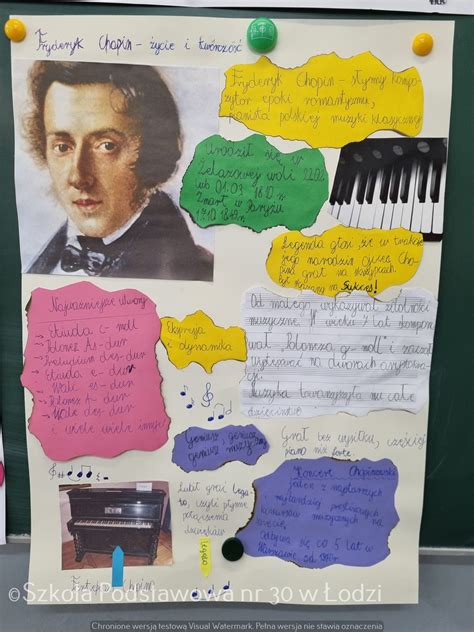 Fryderyk Chopin - życie i twórczość
Fryderyk Chopin - słynny kompo-
zytor epoki romantyzmu,
pianista polskiej muzyki klasycznej
Urodził się w
Żelazowej Woli 22.02
lub 01.03. 1810 r.
Zmarł w Paryżu
17.10 1849 r.
Legenda głosi, że w trakcie
jego narodzin ojciec Cho-
pina grał na skrzypcach
Sukces!
Najważniejsze utwory
Etiuda c-moll
Polonez As-dur
Preludium des-dur
Etiuda
Walc es-dur
Polonez
Walc des-dur
i wiele wiele innych
Ekspresja
i dynamika
Od małego wykazywał zdolności
muzyczne. W wieku 7 lat kompono-
wał "Poloneza g-moll" i zaczął
występować na dworach
Muzyka towarzyszyła mu całe
dzieciństwo
Geniusz, geniusz,
geniusz muzyczny
Grał bez wysiłku, częściej
piano niż forte.
Lubił grać lega-
to, czyli płynne
połączenie
dźwięków
Legato
Konkurs Chopinowski
jeden z najstarszych
na świecie.
Odbywa się co 5 lat w
Warszawie, od
Fortepian Chopina
©Szkoła Podstawowa nr 30 w Łodzi
Chronione wersją testową Visual Watermark. Pełna wersja nie stawia oznaczenia